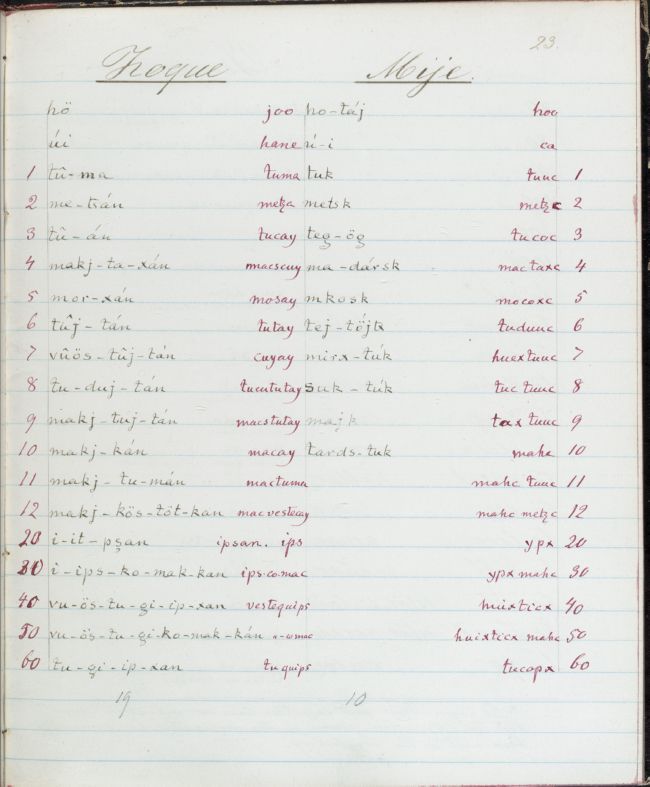 23.
Zoque Mije.
hö joo ho-táj hoo
úi hane ú-i ca
1 tû-ma tuma tuk tuuc 1
2 me-tsán metza metsk metzc 2
3 tû-án tucay teg-ög tucoc 3
4 makj-ta-xán macscuy ma-dársk mactaxc 4
5 mor-xán mosay mkosk mocoxc 5
6 tûj-tán tutay tej-töjtx tuduuc 6
7 vûös-tûj-tán cuyay mirx-túk huextuuc 7
8 tu-duj-tán tucututay suk-túk tuctuuc 8
9 makj-tuj-tán macstutay majk taxtuuc 9
10 makj-kán macay tards-tuk mahc 10
11 makj-tu-mán mactuma mahc tuuc 11
12 makj-kös-töt-kan macvestecay mahc metzc 12
20 i-it-pşan ipsan. ips ypx 20
30 i-ips-ko-mak-kan ips.co.mac ypx mahc 30
40 vu-ös-tu-gi-ip-xan vestequips huixticx 40
50 vu-ös-tu-gi-ko-mak-kán huixticx mahc 50
60 tu-gi-ip-xan tuquips tucopx 60
19 10